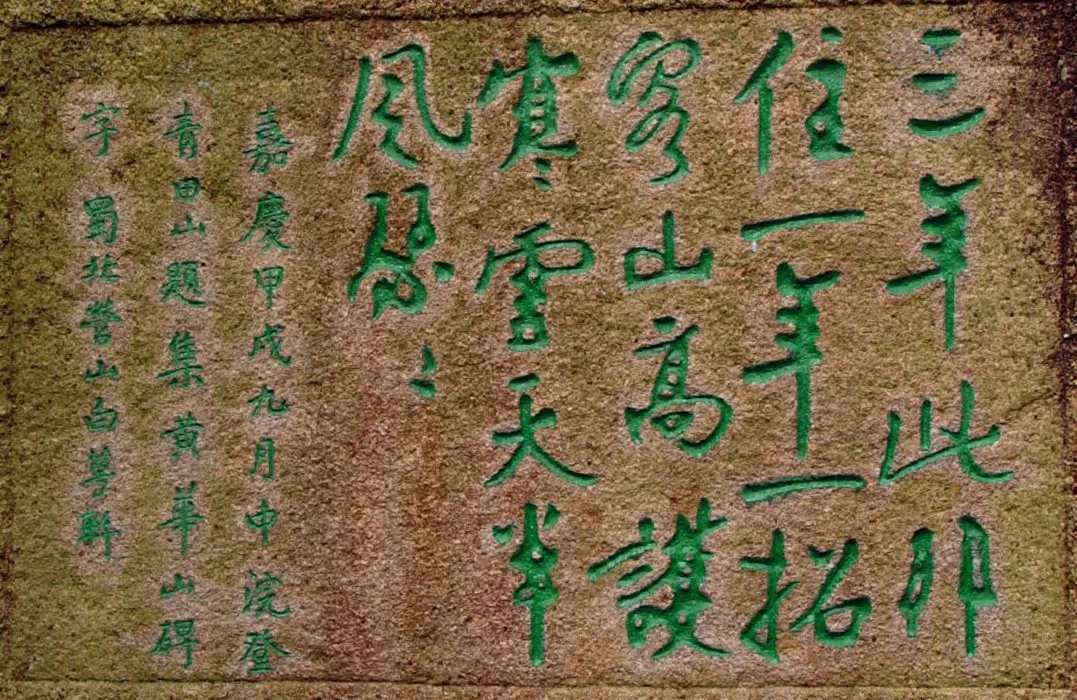 三年此卯
住一年一招
客山高護
寒雲天半
風瑟〻
嘉慶甲戌九月中浣登
青田山題集黃華山碑
字蜀北營山白萼聯